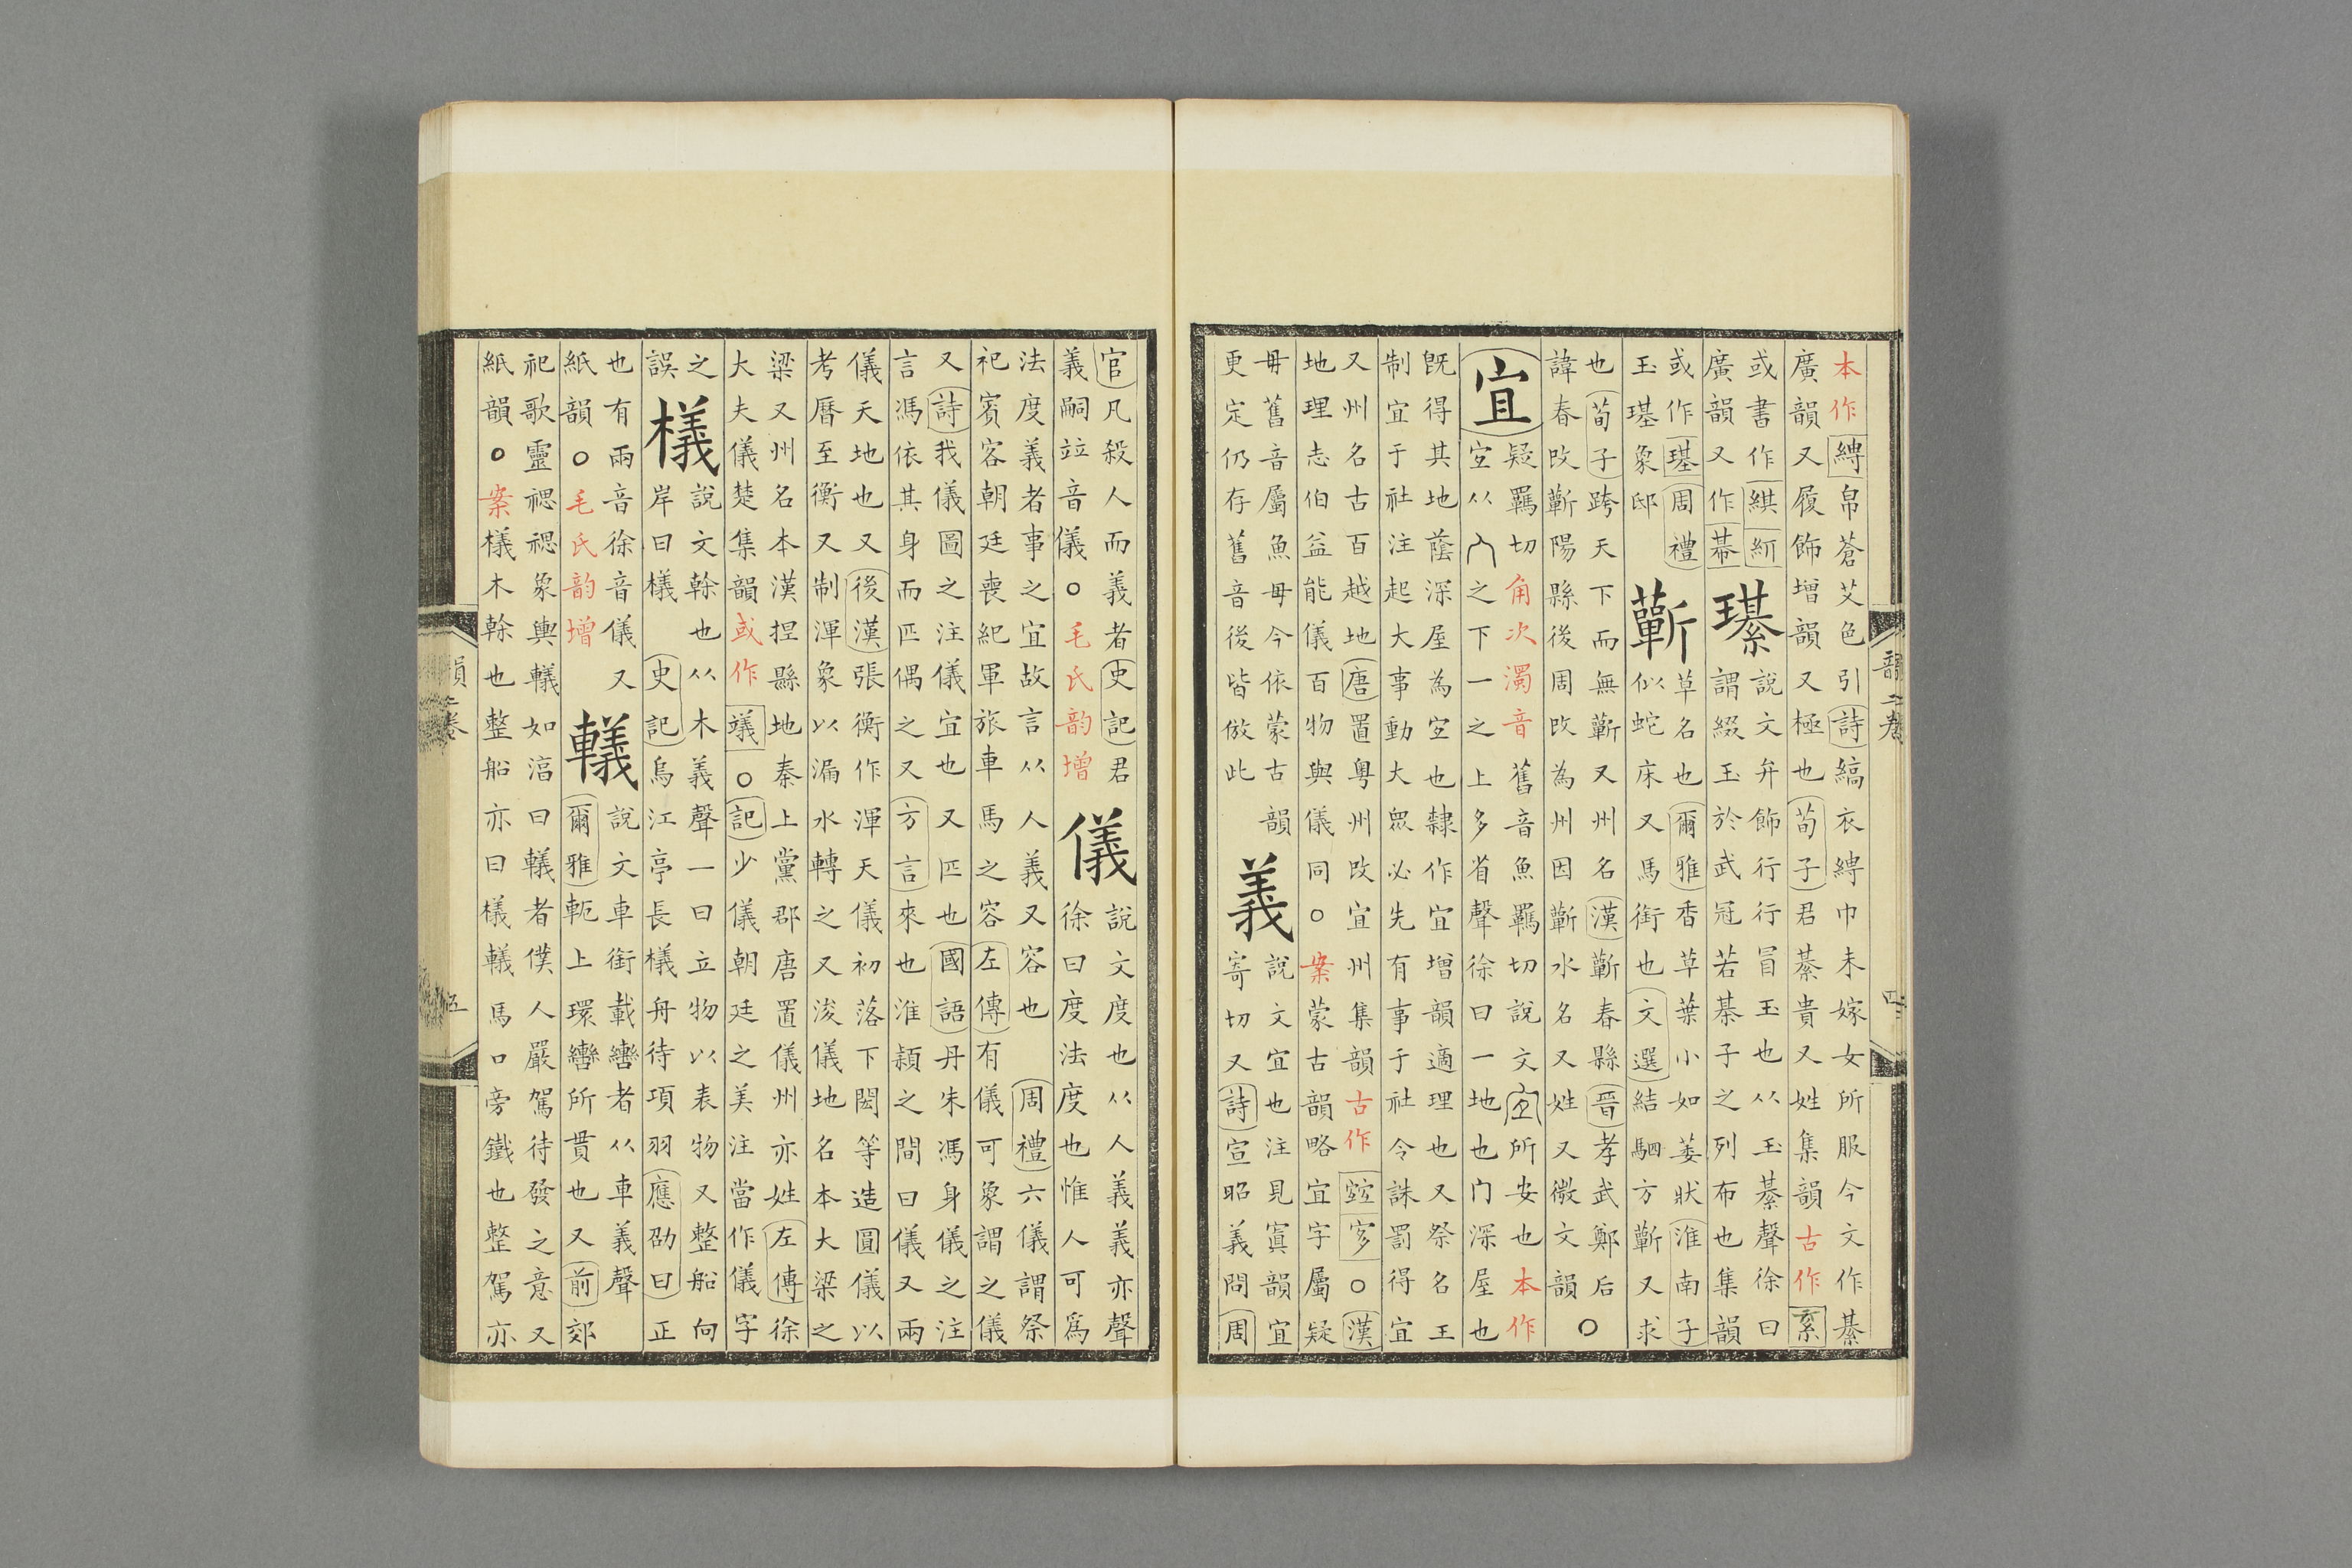 本作縛帛蒼艾色引詩縞衣縛巾未嫁女所服今文作綦
廣韻又履飾增韻又極也荀子君綦貴又姓集韻古作
或書作綨
廣韻又作帺
說文弁飾行行冒玉也从玉綦聲徐曰
謂綴玉於武冠若綦子之列布也集韻
或作璂周禮
玉璂象邸
蘄
草名也爾雅香草葉小如萎狀淮南子
似蛇床又馬銜也文選結駟方蘄又求
也荀子跨天下而無蘄又州名漢蘄春縣晉孝武鄭后○
諱春改蘄陽縣後周改為州因蘄水名又姓又微文韻
宜
疑羈切角次濁音舊音魚羈切說文宐所安也本作
宐从宀之下一之上多省聲徐曰一地也门深屋也
既得其地蔭深屋為宐也隸作宜增韻適理也又祭名王
制宜于社注起大事動大眾必先有事于社令誅罰得宜
又州名古百越地唐置粤州改宜州集韻古作○漢
地理志伯益能儀百物與儀同○案蒙古韻略宜字屬疑
毋舊音屬魚毋今依蒙古韻
更定仍存舊音後皆倣此
義
說文宜也注見寘韻宜
寄切又詩宣昭義問周
韻二卷
四
官凡殺人而義者史記君
義嗣竝音儀○毛氏韵增
儀
說文度也从人義義亦聲
徐曰度法度也惟人可爲
法度義者事之宜故言从人義又容也周禮六儀謂祭
祀賓客朝廷喪紀軍旅車馬之容左傳有儀可象謂之儀
又詩我儀圖之注儀宜也又匹也國語丹朱馮身儀之注
言馮依其身而匹偶之又方言來也淮潁之間曰儀又兩
儀天地也又後漢張衡作渾天儀初落下閎等造圓儀以
考曆至衡又制渾象以漏水轉之又浚儀地名本大梁之
梁又州名本漢捏縣地秦上黨郡唐置儀州亦姓左傳徐
大夫儀楚集韻或作○記少儀朝廷之美注當作儀字
之
誤
檥
說文榦也从木義聲一曰立物以表物又整船向
岸曰檥史記烏江亭長檥舟待項羽應劭曰正
也有兩音徐音儀又
紙韻○毛氏韵增
轙
說文車銜載轡者从車義聲
爾雅軛上環轡所貫也又前郊
祀歌靈禗禗象輿轙如淳曰轙者僕人嚴駕待發之意又
紙韻○案檥木榦也整船亦曰檥轙馬口旁鐵也整駕亦
韻二卷
五